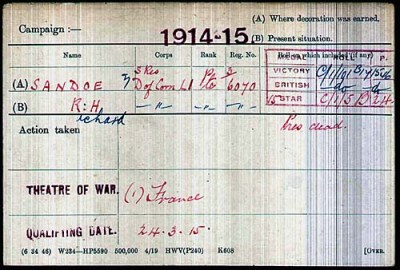 Campaign :— 1914-15
(A) Where decoration was earned.
(B) Present situation.
Name Corps Rank Reg. No. Roll on which included (if any)
MEDAL ROLL P.
(A) SANDOE 3 Res D of Corn LI Pte 3/6070
VICTORY C/1/91 B
(B) R.H. —"— —"— —"—
ichard
BRITISH do do
15 STAR C/1/5 B 24
Action taken
Pres dead.
THEATRE OF WAR. (1) France
QUALIFYING DATE. 24-3-15.
(6 34 46) W234—HP5590 500,000 4/19 HWV(P240) K608 [Over.